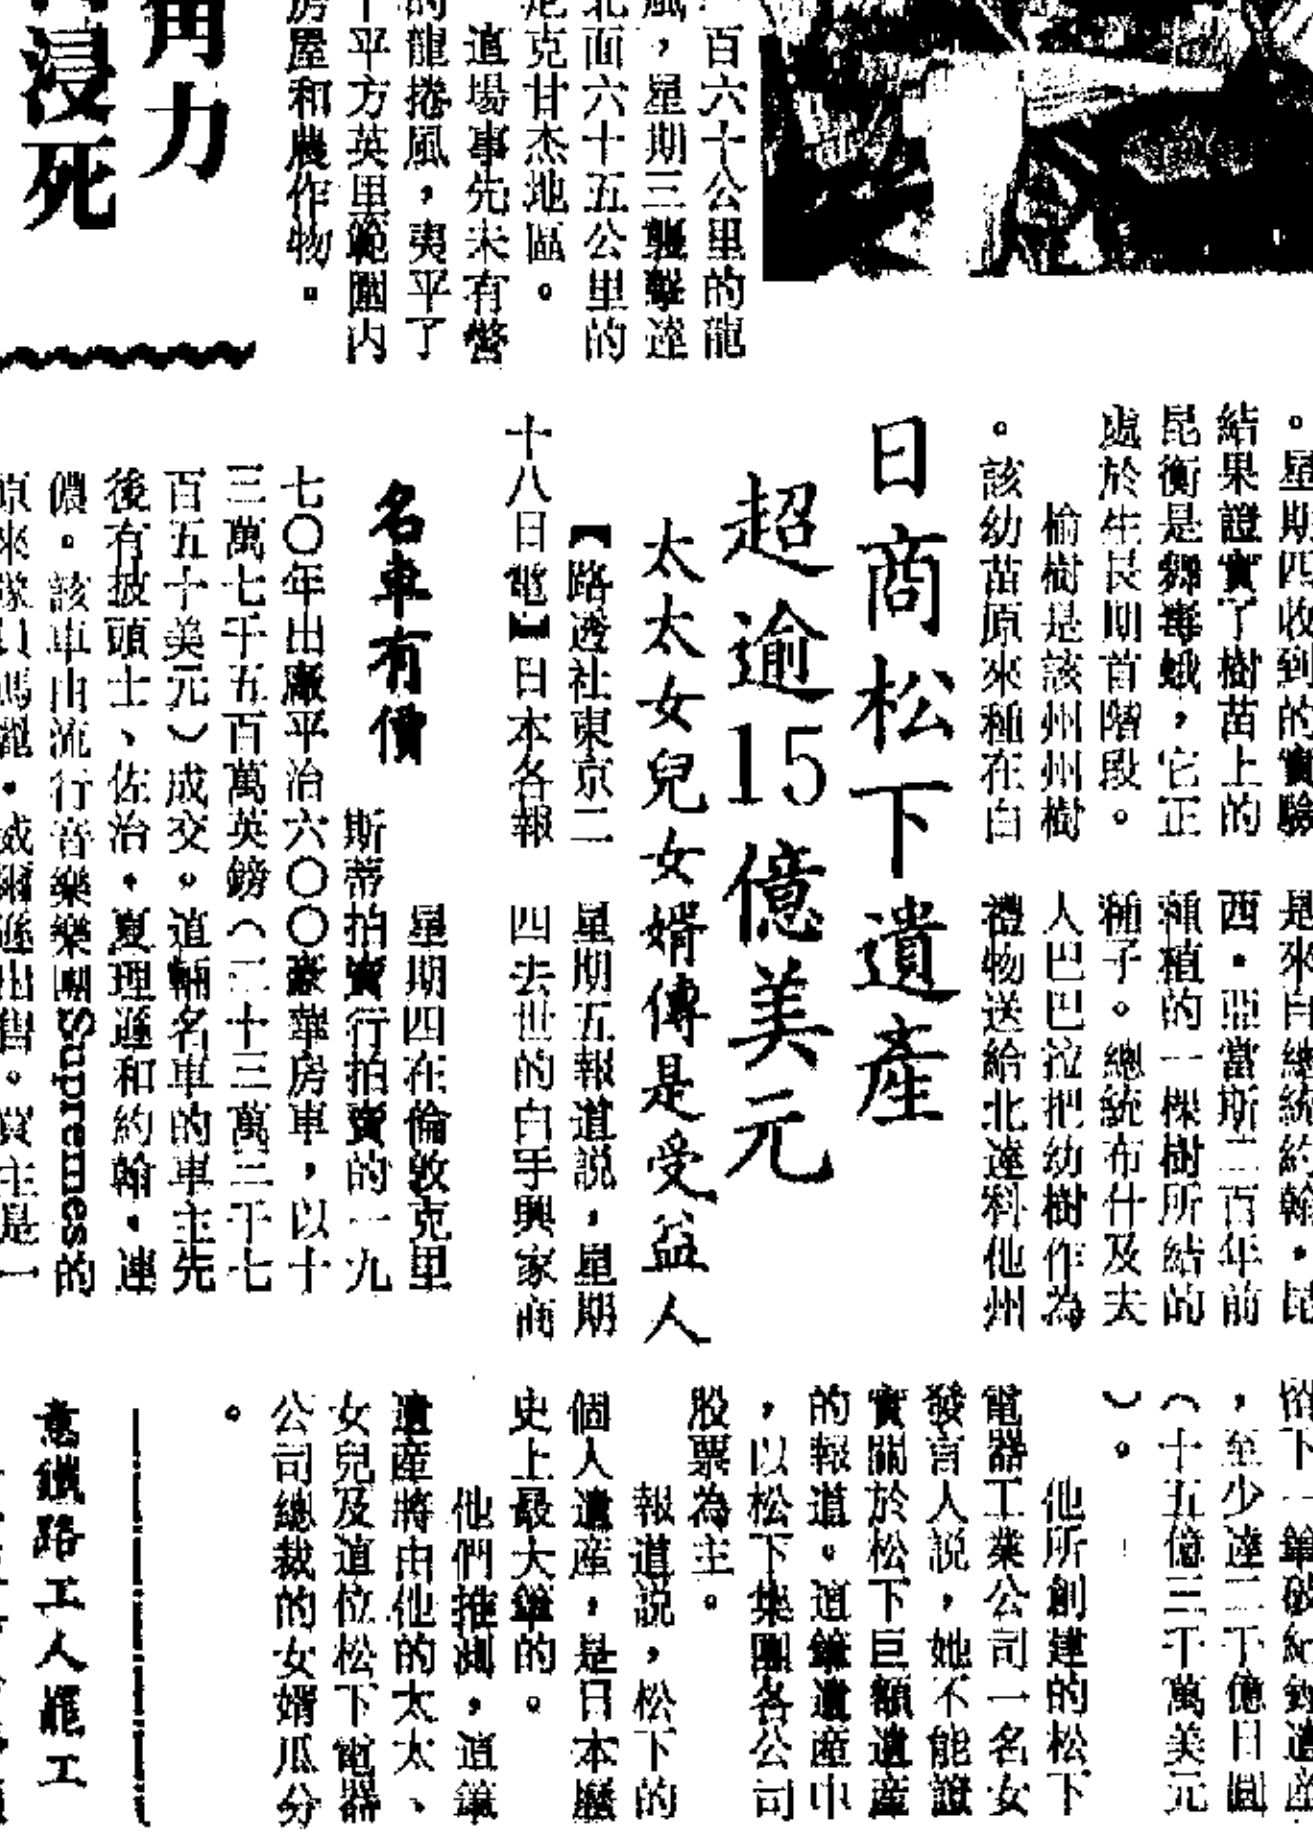 百六十公里的龍
風，星期三襲擊達
北面六十五公里的
尼克甘杰地區。
這場事先未有警
的龍捲風，夷平了
平方英里範圍內
房屋和農作物。
角力
浸死
。星期四收到的實驗
結果證實了樹苗上的
昆衡是舞毒蛾，它正
處於生長期首階段。
榆樹是該州州樹
。該幼苗原來種在白
是來自總統約翰・昆
西・亞當斯二百年前
種植的一棵樹所結的
種子。總統布什及夫
人巴巴拉把幼樹作為
禮物送給北達科他州
日商松下遺產
超逾15億美元
太太女兒女婿傳是受益人
【路透社東京二
十八日電】日本各報
星期五報道説，星期
四去世的白手興家商
下一筆破紀錄遺產
，至少達二千億日圓
（十五億三千萬美元
）。
他所創建的松下
電器工業公司一名女
發言人説，她不能證
實關於松下巨額遺產
的報道。這筆遺產中
，以松下集團各公司
股票為主。
報道説，松下的
個人遺產，是日本歷
史上最大筆的。
他們推測，這筆
遺產將由他的太太、
女兒及這位松下電器
公司總裁的女婿瓜分
。
名車有價
星期四在倫敦克里
斯蒂拍賣行拍賣的一九
七〇年出廠平治六〇〇豪華房車，以十
三萬七千五百萬英鎊（二十三萬三千七
百五十美元）成交。這輛名車的車主先
後有披頭士、佐治・夏理遜和約翰・連
儂。該車由流行音樂樂團Supremes的
原來隊員瑪麗・威爾遜出售。買主是一
意鐵路工人罷工